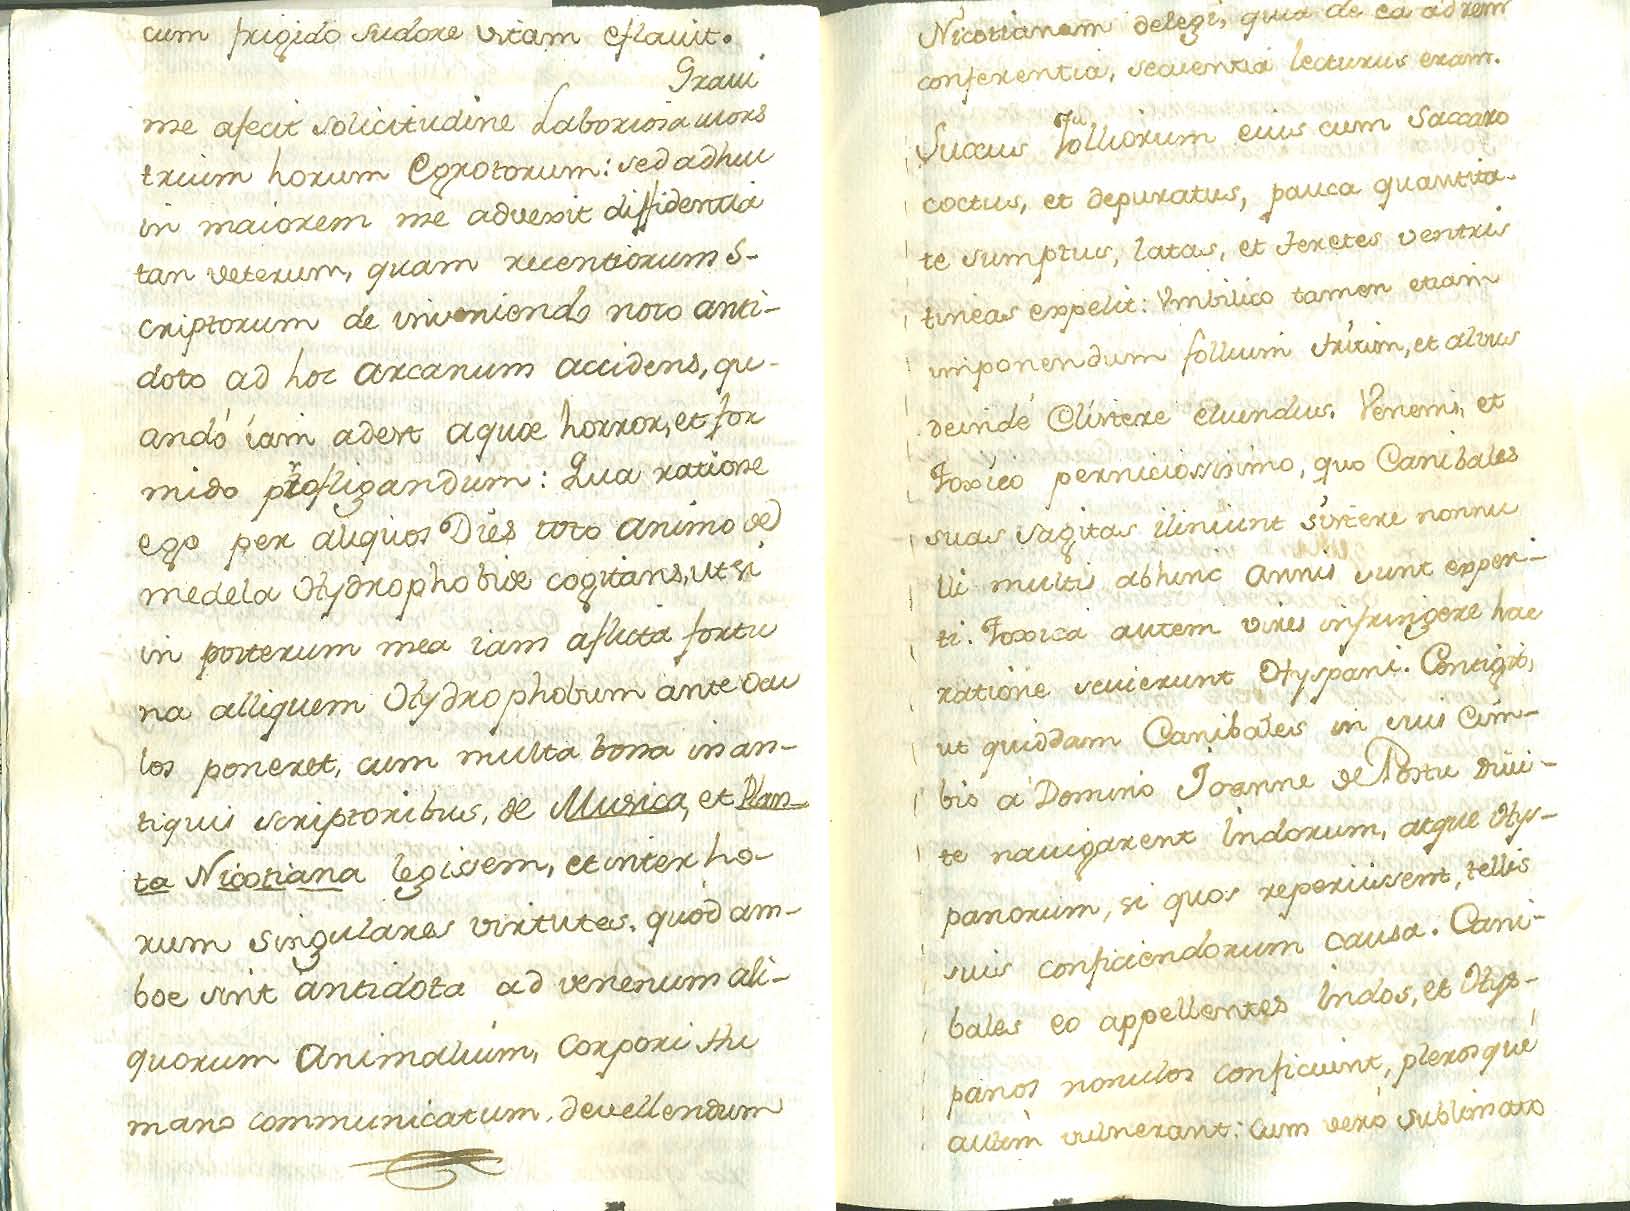 cum frigido sudore vitam eflauit.
Graui
me afecit solicitudine Laboriosa mors
trium horum Egrotorum: sed adhuc
in maiorem me advexit diffidentia
tan veterum, quam recentiorum S-
criptorum de inveniendo noto anti-
doto ad hoc arcanum accidens, qu-
andó iam adest aquæ horror, et for
mido profligandum: Qua ratione
ego per aliquos Dies toto animo de
medela Hydrophobiæ cogitans, ut si
in posterum mea iam aflicta fortu
na alliquem Hydrophobum ante ocu
los poneret, cum multa bona in an-
tiquis scriptoribus, de Musica, et Plan-
ta Nicotiana legissem, et inter ho-
rum singulares virtutes. quód am-
boe sint antidota ad venenum ali-
quorum animalium, corpori Hu
mano communicatum, devellendum
Nicotianam delegi, quia de ea ad rem
conferentia, sequentia lecturus eram.
Succus folliorum eius cum Saccaro
coctus, et depuratus, pauca quantita-
te sumptus, latas, et teretes ventris
tineas expelit: Vmbilico tamen etiam
imponendum follium tritum, et alvus
deindé Clistere eluendus. Venemi, et
Toxico perniciossimo, quo Canibales
suas sagitas iliniunt sistere nonnu
lli multis abhinc annis sunt exper-
ti. Toxica autem vires infringere hac
ratione sciuerunt Hyspani. Contigit,
ut quiddam Canibales in suis Cim-
bis á Domino Joanne de Portu Diui-
te nauigarent Indorum, atque Hys-
panorum, si quos reperiissent, tellis
suis conficiendorum causa. Cani-
bales eo appellentes Indos, et Hys-
panos nonulos conficiunt, plerosqué
autim vulnerant: cum veró sublimato